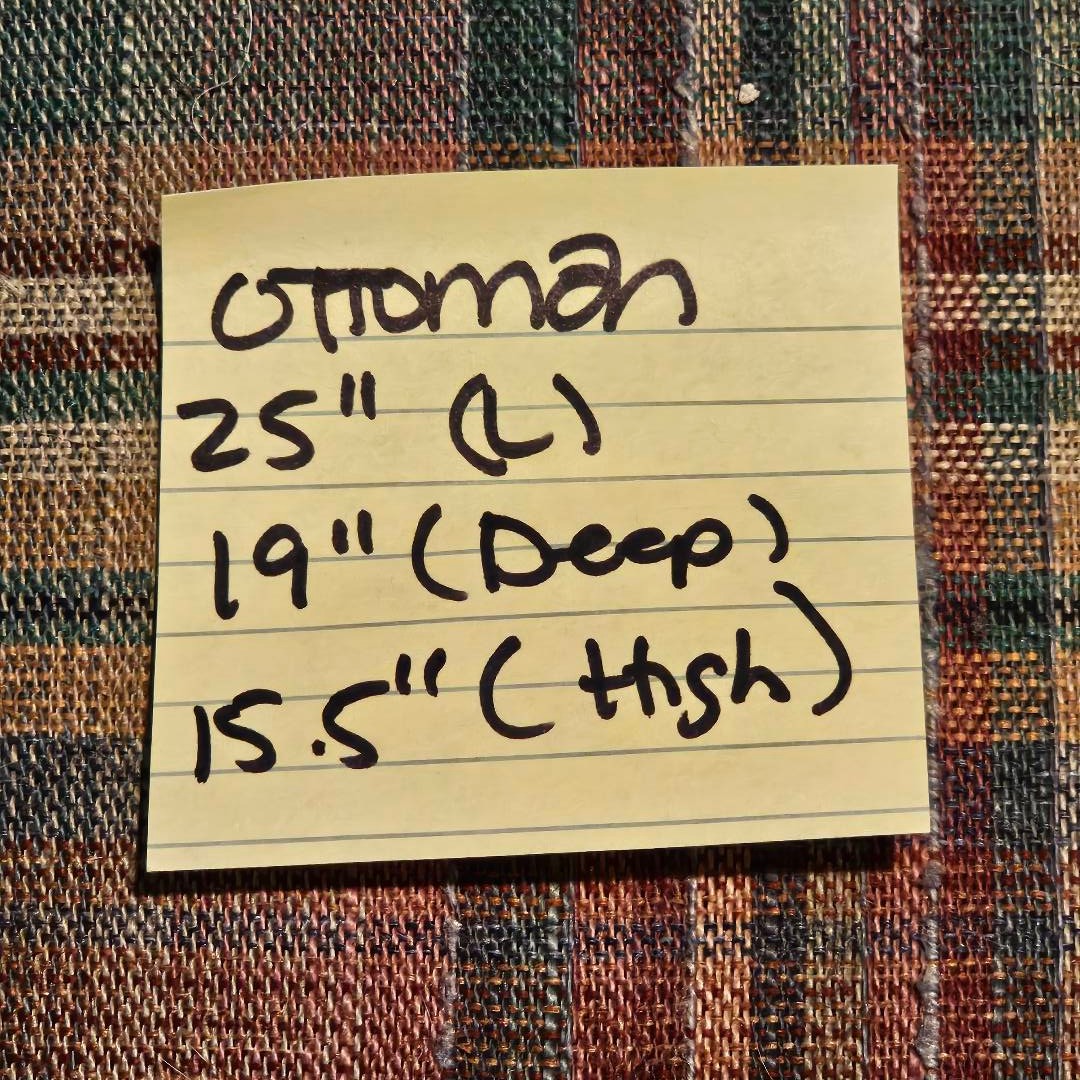 OTTOMan
25" (L)
19" (Deep)
15.5" (High)